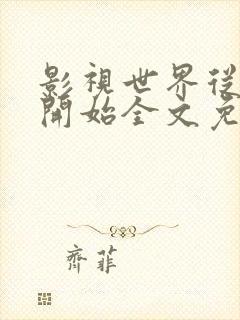 影視世界從
開始全文免
齊菲